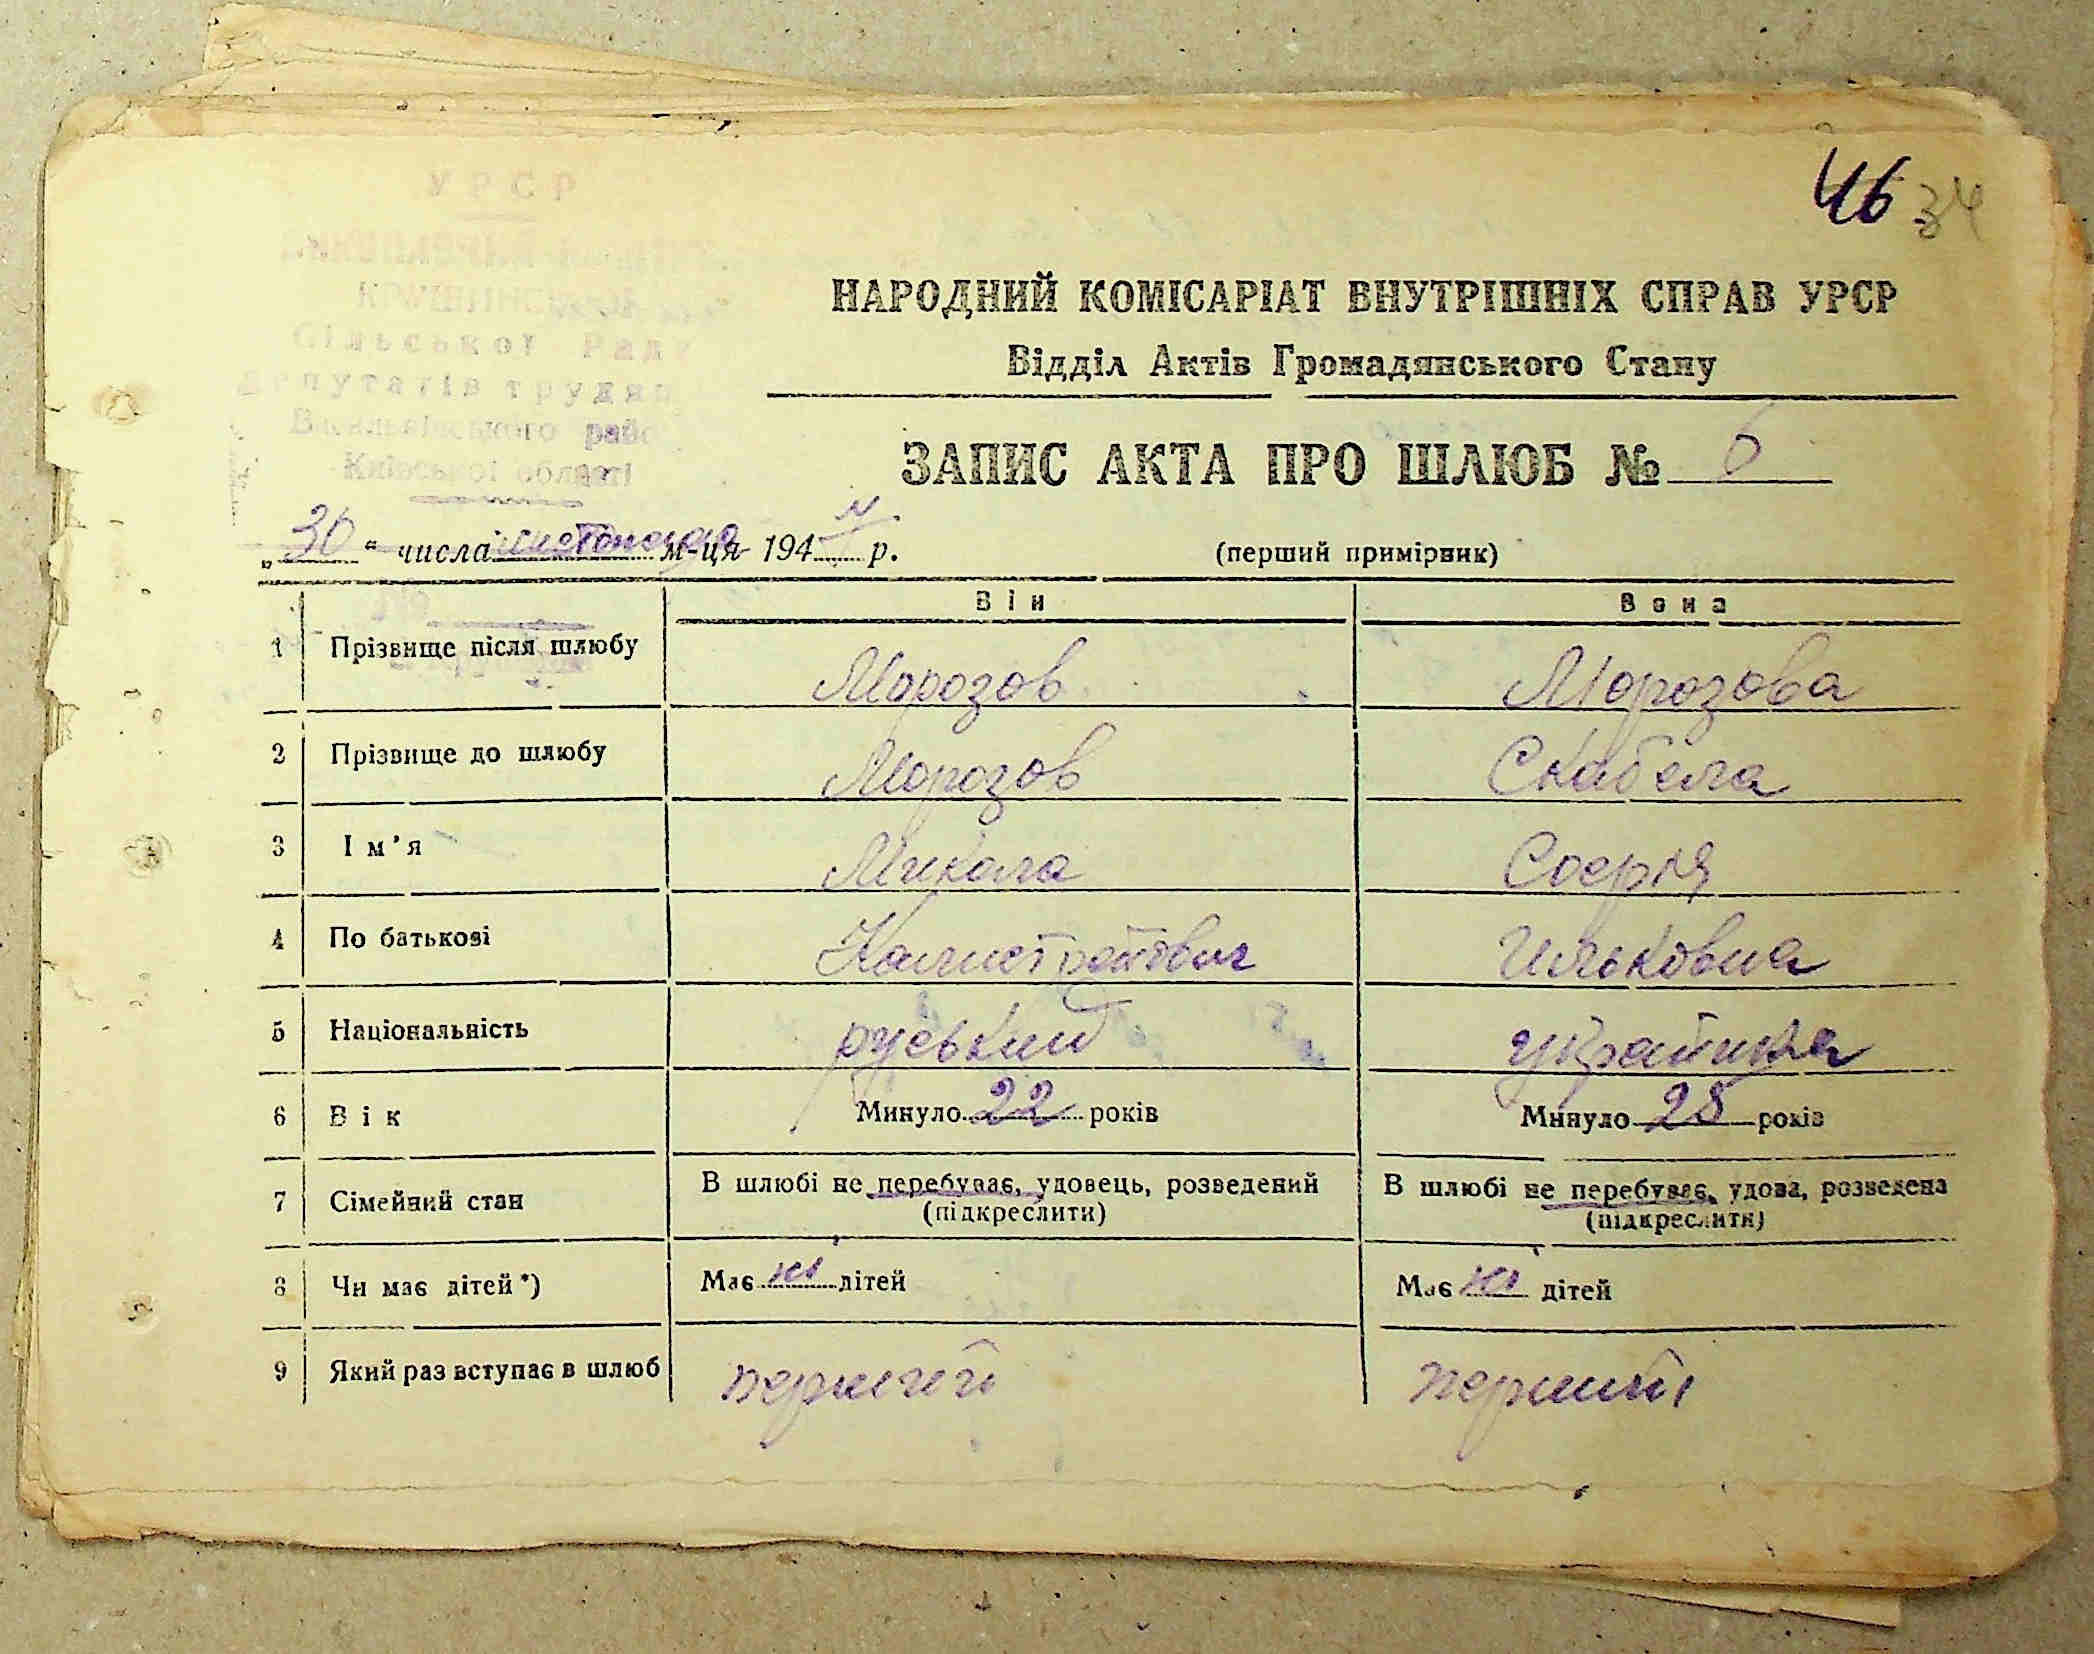 46 34
УРСР
Сільської Ради
депутатів трудящ
району
Київської області
НАРОДНИЙ КОМІСАРІАТ ВНУТРІШНІХ СПРАВ УРСР
Відділ Актів Громадянського Стану
ЗАПИС АКТА ПРО ШЛЮБ № 6
„30“ числа листопада м-ця 194 р.
(перший примірник)
Він Вона
1 Прізвище після шлюбу Морозов Морозова
2 Прізвище до шлюбу Морозов Скабела
3 Ім’я Микола Софія
4 По батькові Калистратович Ильковна
5 Національність руський українка
6 Вік Минуло 22 років Минуло 28 років
7 Сімейний стан В шлюбі не перебуває, удовець, розведений (підкреслити) В шлюбі не перебуває, удова, розведена (підкреслити)
8 Чи має дітей*) Має ні дітей Має ні дітей
9 Який раз вступає в шлюб перший перший